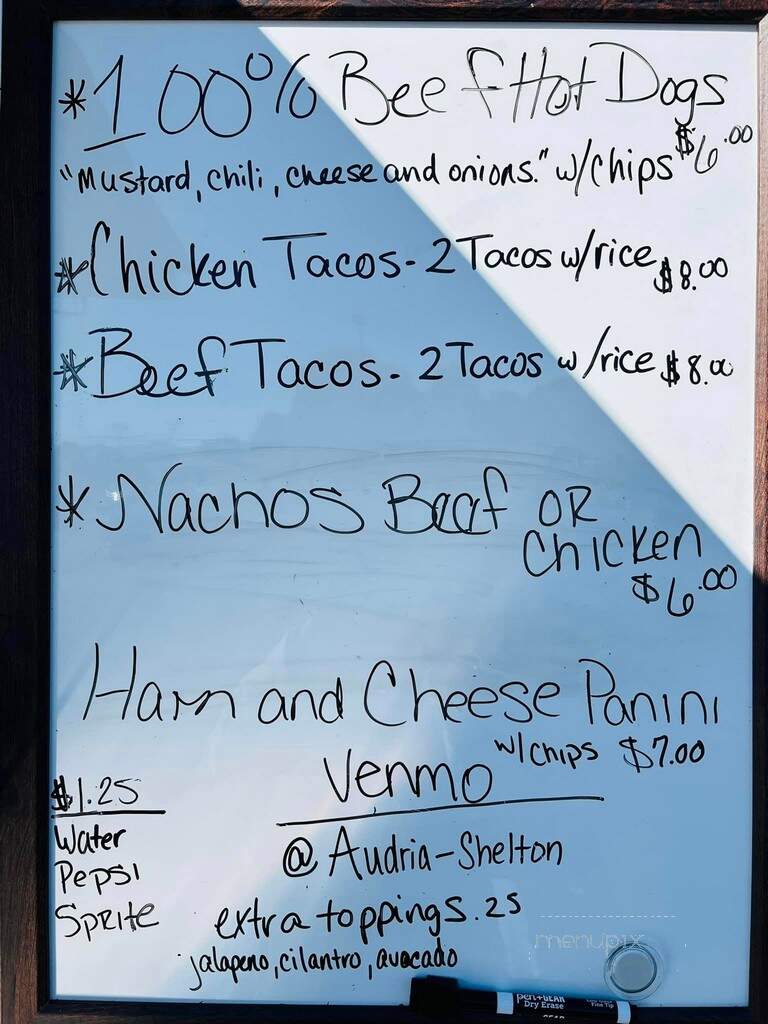 *100% Beef Hot Dogs
"Mustard, chili, cheese and onions." w/chips $6.00
*Chicken Tacos - 2 Tacos w/rice $8.00
*Beef Tacos - 2 Tacos w/rice $8.00
*Nachos Beef OR
Chicken
$6.00
Ham and Cheese Panini
w/chips $7.00
Venmo
@Audria-Shelton
$1.25
Water
Pepsi
Sprite
extra toppings .25
jalapeno, cilantro, avocado
menupix
pen+GEAR
Dry Erase
Fine Tip